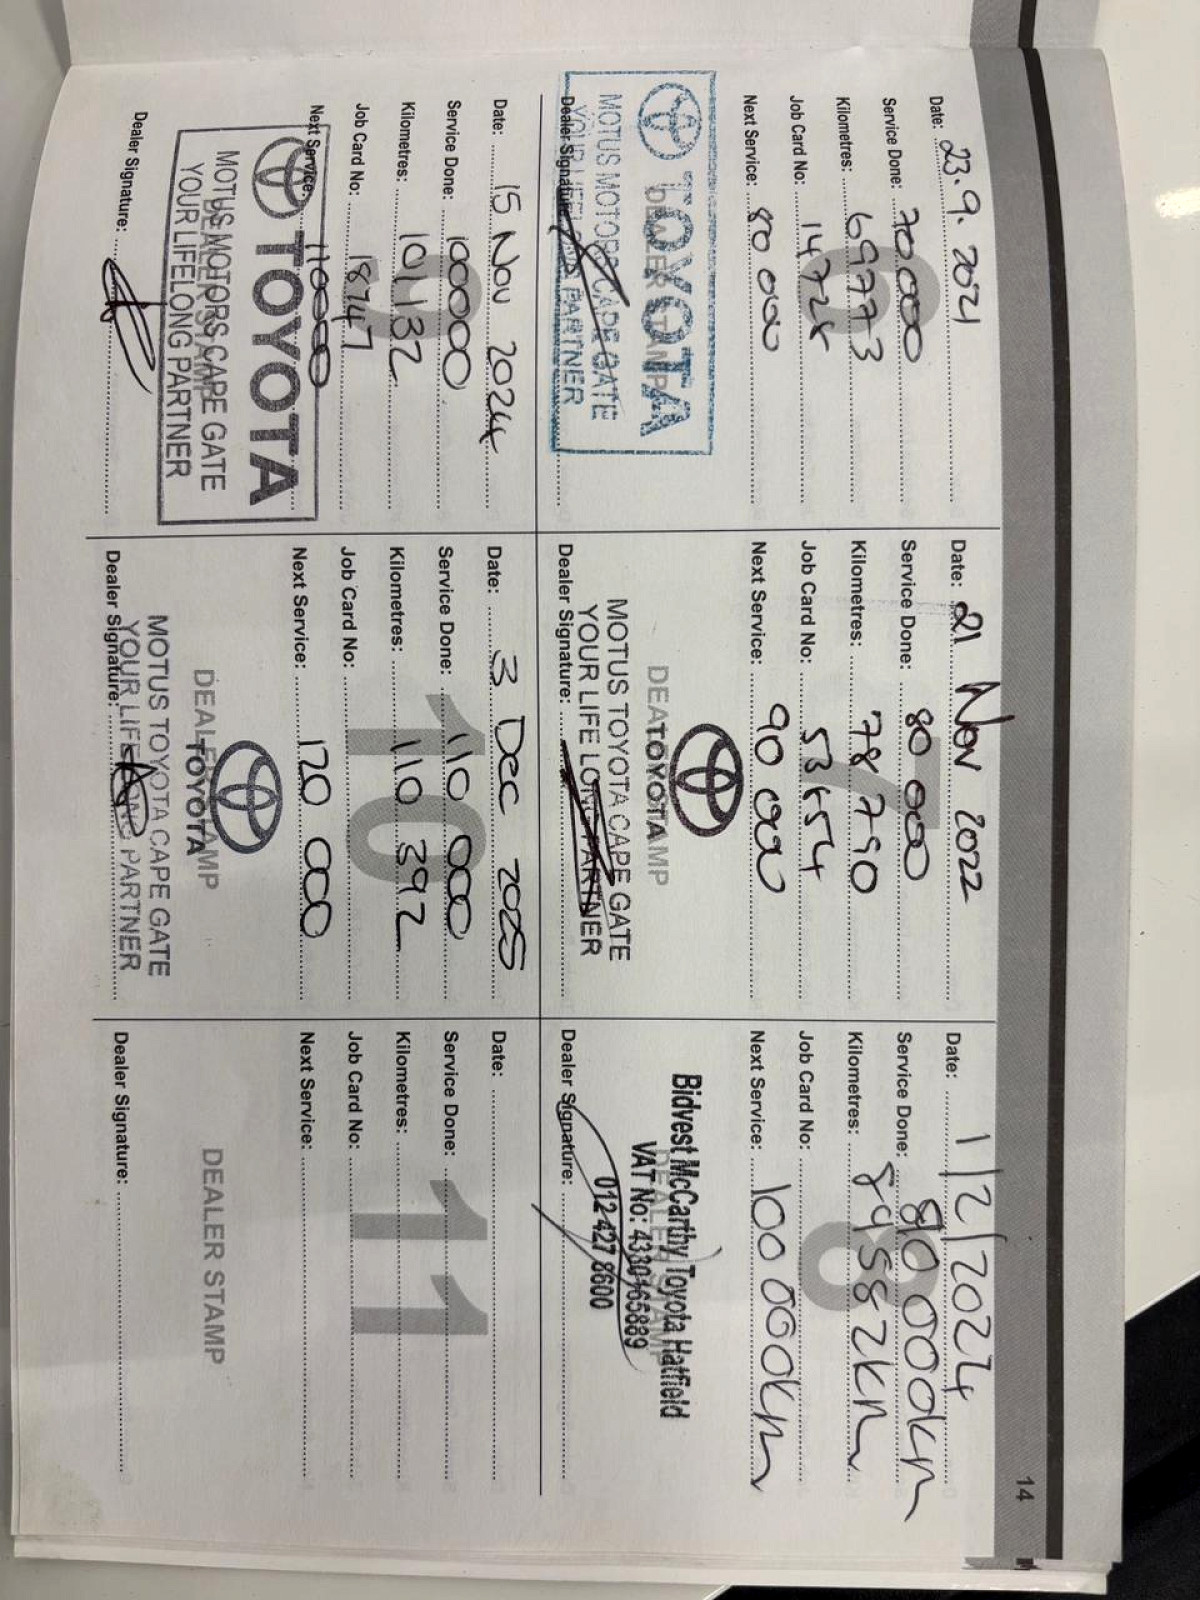 14
Date: 23.9.2021
Service Done: 70000
Kilometres: 69773
Job Card No: 14728
Next Service: 80 000
6
TOYOTA
DEALER STAMP
MOTUS MOTORS CAPE GATE
YOUR LIFELONG PARTNER
Dealer Signature:
Date: 21 Nov 2022
Service Done: 80 000
Kilometres: 78 790
Job Card No:
Next Service: 90 000
7
TOYOTA
DEALER STAMP
MOTUS TOYOTA CAPE GATE
YOUR LIFE LONG PARTNER
Dealer Signature:
Date: 1/2/2024
Service Done: 000km
Kilometres: 89582km
Job Card No:
Next Service: 100 000km
8
Bidvest McCarthy Toyota Hatfield
DEALER STAMP
VAT No: 4330165889
012 427 8600
Dealer Signature:
Date: 15 Nov 2024
Service Done: 100000
Kilometres: 101132
Job Card No: 18747
Next Service: 110000
9
TOYOTA
DEALER STAMP
MOTUS MOTORS CAPE GATE
YOUR LIFELONG PARTNER
Dealer Signature:
Date: 3 Dec 2025
Service Done: 110 000
Kilometres: 110 392
Job Card No:
Next Service: 120 000
10
DEALER STAMP
TOYOTA
MOTUS TOYOTA CAPE GATE
YOUR LIFE LONG PARTNER
Dealer Signature:
Date:
Service Done:
Kilometres:
Job Card No:
Next Service:
11
DEALER STAMP
Dealer Signature: